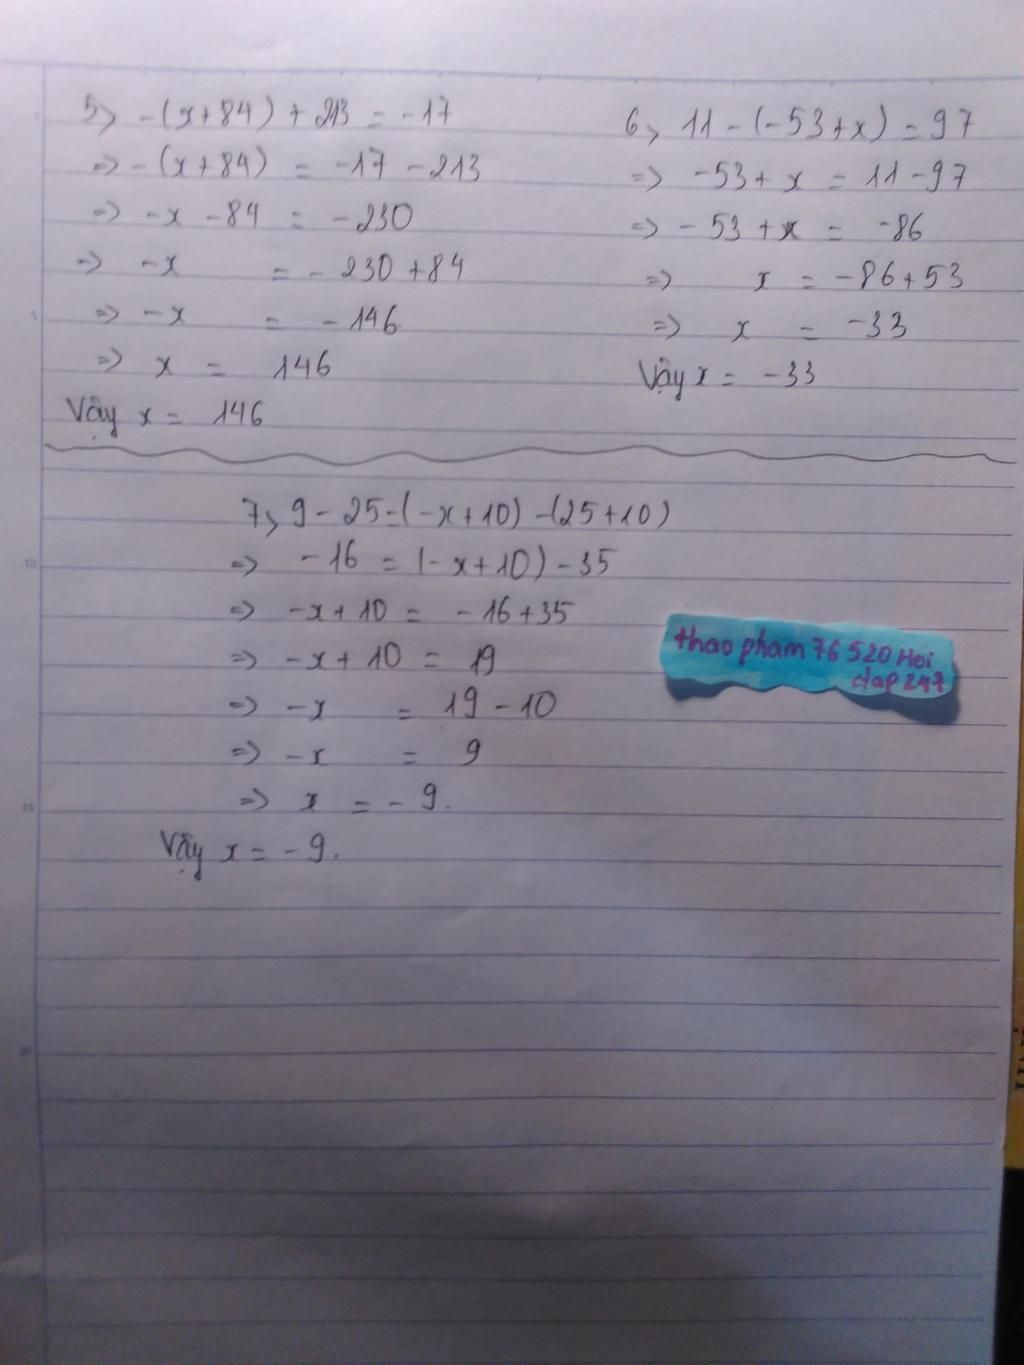 5> -(x+84) + 213 = -17
=> -(x+84) = -17 - 213
=> -x - 84 = -230
=> -x = -230 + 84
=> -x = -146
=> x = 146
Vậy x = 146
6> 11 - (-53+x) = 97
=> -53 + x = 11 - 97
=> -53 + x = -86
=> x = -86 + 53
=> x = -33
Vậy x = -33
7> 9 - 25 = (-x+10) - (25+10)
=> -16 = (-x+10) - 35
=> -x + 10 = -16 + 35
=> -x + 10 = 19
=> -x = 19 - 10
=> -x = 9
=> x = -9.
Vậy x = -9.
thao pham 76 520 Hoi
dap 247